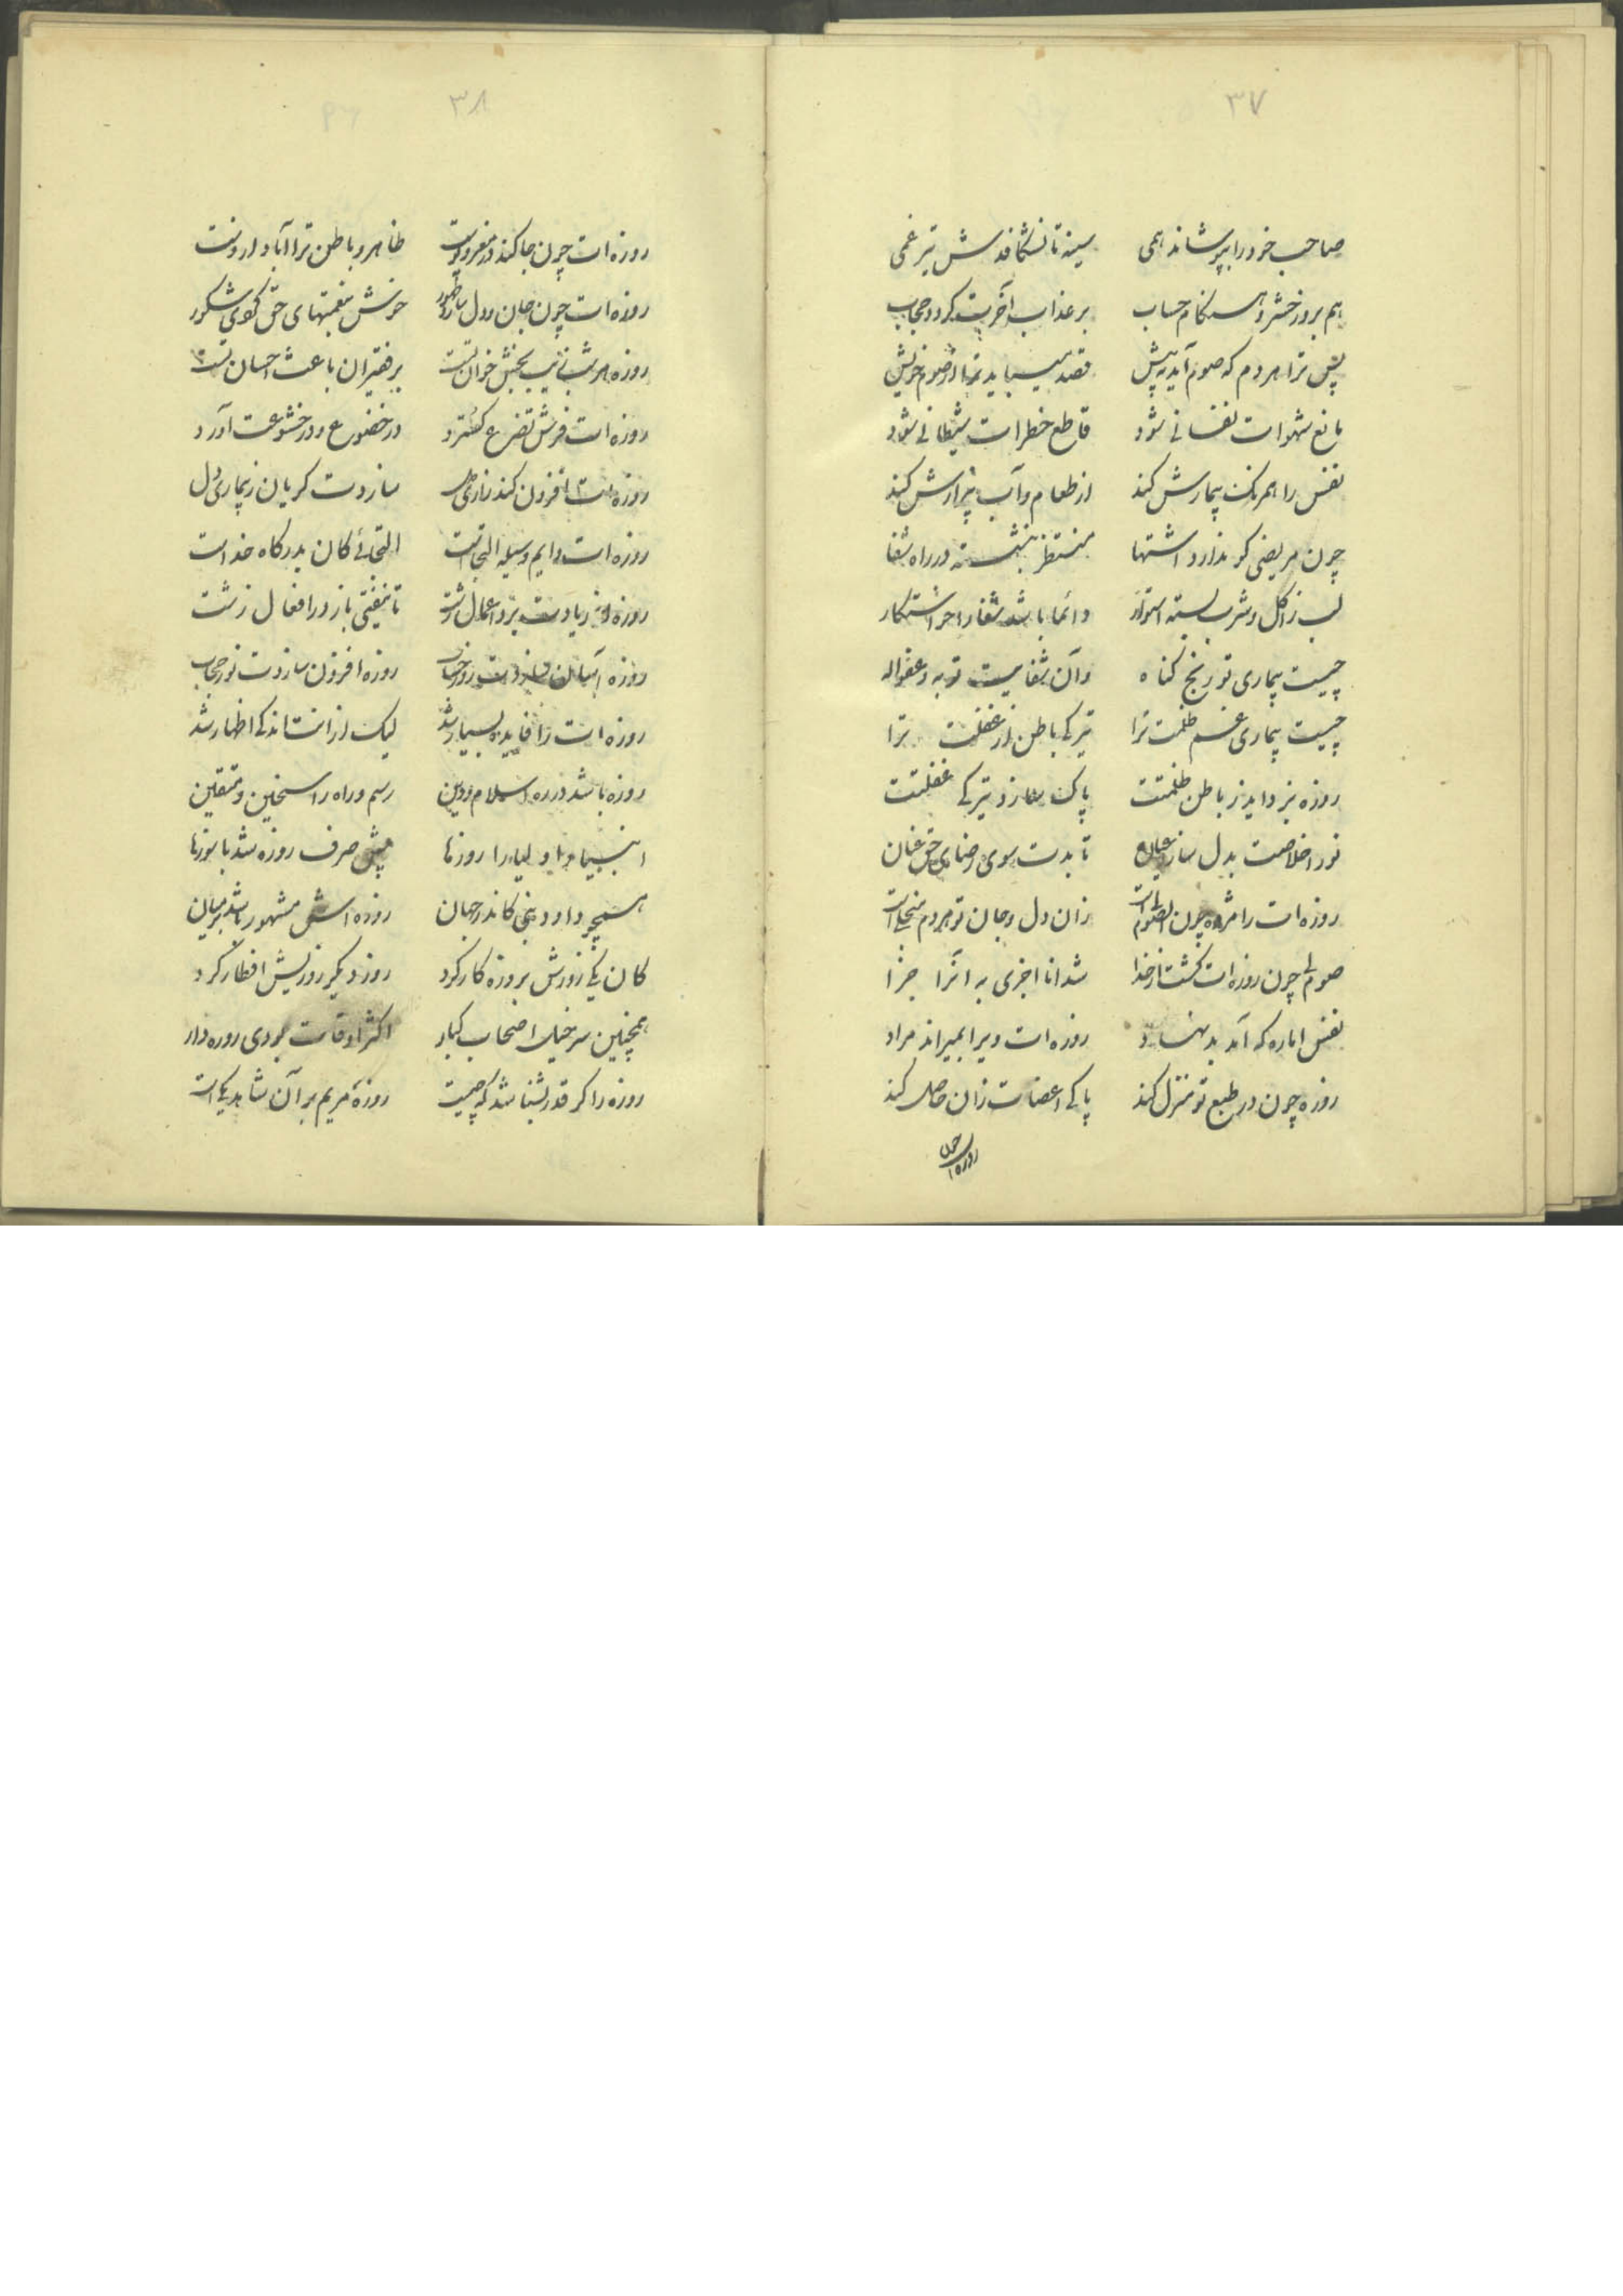 ٣٧
صاحب خود را بپوشاند همی سینه تا نشکافدش تیر غمی
هم بروز حشر و هنگام حساب بر عذاب آخرت گردد حجاب
پس ترا هر دم که صوم آید به پیش قصد میباید ترا از صوم خویش
مانع شهوات نفسانی شود قاطع خطرات شیطانی شود
نفس را همرنک بیمارش کند از طعام و آب بیزارش کند
چون مریضی کو ندارد اشتها منتظر بنشسته در راه شفا
لب ز اکل و شرب بسته استوار دائما باشد شفا را خواستکار
چیست بیماری تو رنج کناه وآن شفایست توبه و عفو اله
چیست بیماری غم ظلمت ترا تیرکی باطن از غفلت ترا
روزه بزداید ز باطن ظلمتت پاک سازد تیرکی غفلتت
نور اخلاصت بدل سازد عیان تا بدت سوی رضای حق عنان
روزه ات را مژده چون الصوم لی است زان دل و جان تو هر دم منجلی است
صوم لی چون روزه ات کشت از خدا شد انا اجزی به آنرا جزا
نفس اماره که آمد بد نهاد روزه ات ویرا بمیراند مراد
روزه چون در طبع تو منزل کند پاکی اعضات زان حاصل کند
روزه ات چون
٣٨
روزه ات چون جا کند در مغز و پوست ظاهر و باطن ترا آباد ازوست
روزه ات چون جان و دل سازد طهور خوش بنعمتهای حق کوی شکور
روزه هر شب زینت بخش خوان تست بر فقیران باعث احسان تست
روزه ات فرش تضرع کسترد در خضوع و در خشوعت آورد
روزه ات افزون کند زاری دل سازدت کریان ز بیماری دل
روزه ات دایم وسیله التجاست التجائی کان بدرکاه خداست
روزه از یادت برد اعمال زشت تا نیفتی باز در افعال زشت
روزه آسان سازدت روز حساب روزه افزون سازدت نور حجاب
روزه ات را فایده بسیار شد لیک از آنست اندکی اظهار شد
روزه باشد در ره اسلام و دین رسم و راه راسخین و متقین
انبیا و اولیا را روزها بیش صرف روزه شد با سوزها
همچو داود نبی کاندر جهان روزه اش مشهور باشد در میان
کان یکی روزش بروزه کار کرد روز دیکر روزیش افطار کرد
همچنین سرخیل اصحاب کبار اکثر اوقات بودی روزه دار
روزه را کر قدر بشناسد که چیست روزه مریم بر آن شاهد یکی است